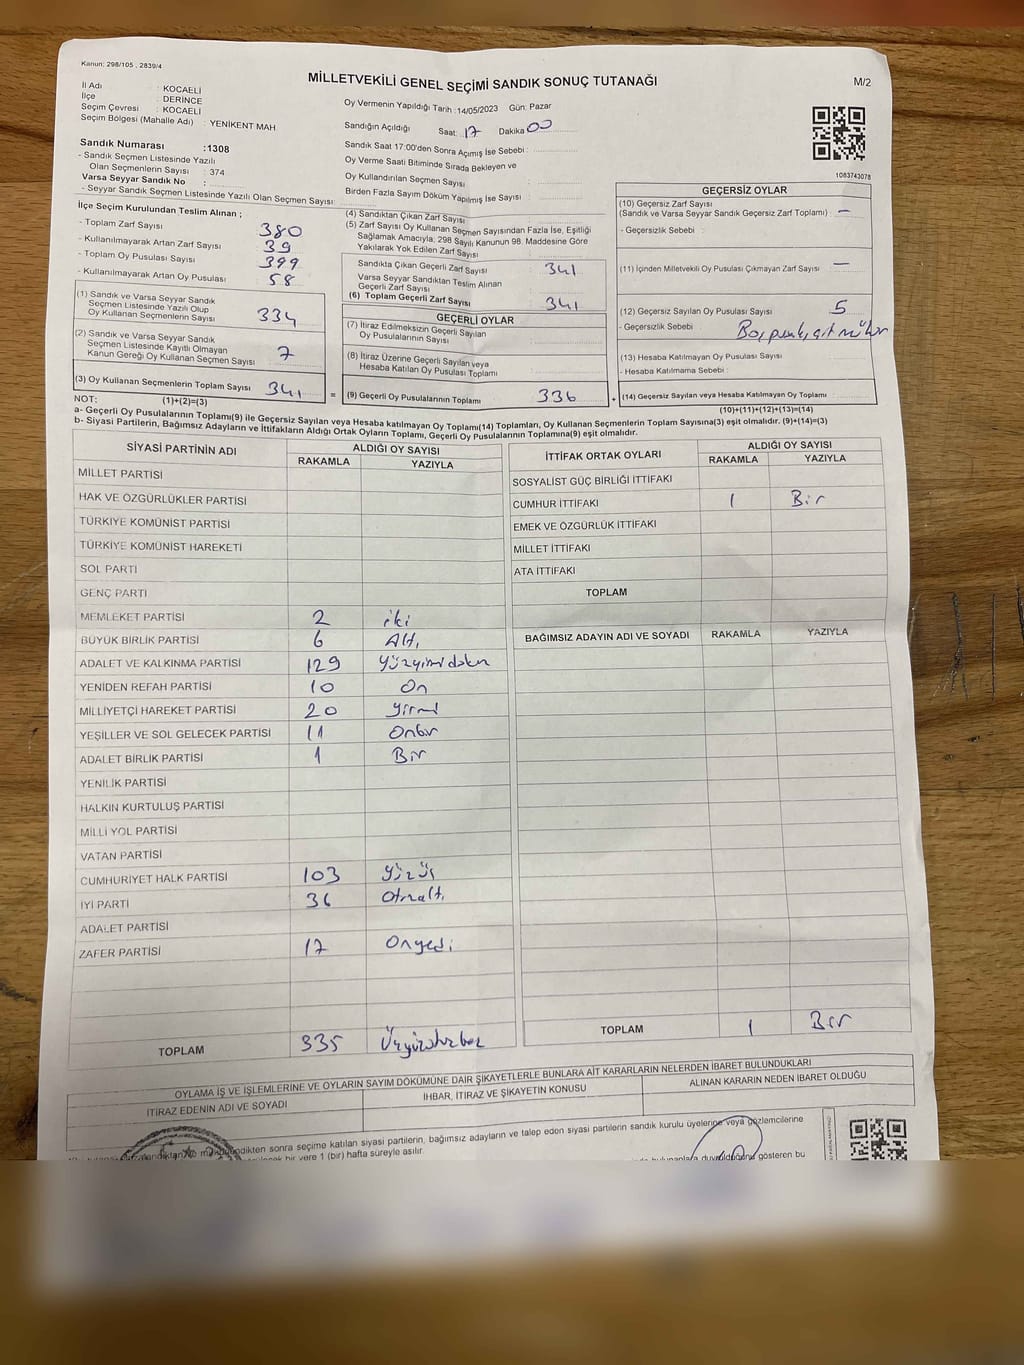 Kanun: 298/105 , 2839/4
MİLLETVEKİLİ GENEL SEÇİMİ SANDIK SONUÇ TUTANAĞI
M/2
İl Adı : KOCAELİ
İlçe : DERİNCE
Seçim Çevresi : KOCAELİ
Seçim Bölgesi (Mahalle Adı) : YENİKENT MAH
Sandık Numarası :1308
- Sandık Seçmen Listesinde Yazılı
Olan Seçmenlerin Sayısı : 374
Varsa Seyyar Sandık No :
- Seyyar Sandık Seçmen Listesinde Yazılı Olan Seçmen Sayısı:
Oy Vermenin Yapıldığı Tarih :14/05/2023 Gün: Pazar
Sandığın Açıldığı Saat: 17 Dakika 00
Sandık Saat 17:00'den Sonra Açımış İse Sebebi :
Oy Verme Saati Bitiminde Sırada Bekleyen ve
Oy Kullandırılan Seçmen Sayısı :
Birden Fazla Sayım Döküm Yapılmış İse Sayısı :
1083743078
İlçe Seçim Kurulundan Teslim Alınan ;
- Toplam Zarf Sayısı : 380
- Kullanılmayarak Artan Zarf Sayısı : 39
- Toplam Oy Pusulası Sayısı : 399
- Kullanılmayarak Artan Oy Pusulası : 58
(1) Sandık ve Varsa Seyyar Sandık
Seçmen Listesinde Yazılı Olup
Oy Kullanan Seçmenlerin Sayısı : 334
(2) Sandık ve Varsa Seyyar Sandık
Seçmen Listesinde Kayıtlı Olmayan
Kanun Gereği Oy Kullanan Seçmen Sayısı : 7
(3) Oy Kullanan Seçmenlerin Toplam Sayısı : 341
(4) Sandıktan Çıkan Zarf Sayısı :
(5) Zarf Sayısı Oy Kullanan Seçmen Sayısından Fazla İse, Eşitliği
Sağlamak Amacıyla; 298 Sayılı Kanunun 98. Maddesine Göre
Yakılarak Yok Edilen Zarf Sayısı :
Sandıkta Çıkan Geçerli Zarf Sayısı : 341
Varsa Seyyar Sandıktan Teslim Alınan
Geçerli Zarf Sayısı :
(6) Toplam Geçerli Zarf Sayısı : 341
GEÇERLİ OYLAR
(7) İtiraz Edilmeksizin Geçerli Sayılan
Oy Pusulalarının Sayısı :
(8) İtiraz Üzerine Geçerli Sayılan veya
Hesaba Katılan Oy Pusulası Toplamı :
= (9) Geçerli Oy Pusulalarının Toplamı : 336
GEÇERSİZ OYLAR
(10) Geçersiz Zarf Sayısı
(Sandık ve Varsa Seyyar Sandık Geçersiz Zarf Toplamı) : —
- Geçersizlik Sebebi :
(11) İçinden Milletvekili Oy Pusulası Çıkmayan Zarf Sayısı : —
(12) Geçersiz Sayılan Oy Pusulası Sayısı : 5
- Geçersizlik Sebebi :
(13) Hesaba Katılmayan Oy Pusulası Sayısı :
- Hesaba Katılmama Sebebi :
+ (14) Geçersiz Sayılan veya Hesaba Katılmayan Oy Toplamı :
NOT: (1)+(2)=(3) (10)+(11)+(12)+(13)=(14)
a- Geçerli Oy Pusulalarının Toplamı(9) ile Geçersiz Sayılan veya Hesaba katılmayan Oy Toplamı(14) Toplamları, Oy Kullanan Seçmenlerin Toplam Sayısına(3) eşit olmalıdır. (9)+(14)=(3)
b- Siyasi Partilerin, Bağımsız Adayların ve İttifakların Aldığı Ortak Oyların Toplamı, Geçerli Oy Pusulalarının Toplamına(9) eşit olmalıdır.
SİYASİ PARTİNİN ADI ALDIĞI OY SAYISI
RAKAMLA YAZIYLA
MİLLET PARTİSİ
HAK VE ÖZGÜRLÜKLER PARTİSİ
TÜRKİYE KOMÜNİST PARTİSİ
TÜRKİYE KOMÜNİST HAREKETİ
SOL PARTİ
GENÇ PARTİ
MEMLEKET PARTİSİ 2 iki
BÜYÜK BİRLİK PARTİSİ 6 Altı
ADALET VE KALKINMA PARTİSİ 129 Yüzyirmidokuz
YENİDEN REFAH PARTİSİ 10 On
MİLLİYETÇİ HAREKET PARTİSİ 20 Yirmi
YEŞİLLER VE SOL GELECEK PARTİSİ 11 Onbir
ADALET BİRLİK PARTİSİ 1 Bir
YENİLİK PARTİSİ
HALKIN KURTULUŞ PARTİSİ
MİLLİ YOL PARTİSİ
VATAN PARTİSİ
CUMHURİYET HALK PARTİSİ 103 Yüzüç
İYİ PARTİ 36 Otuzaltı
ADALET PARTİSİ
ZAFER PARTİSİ 17 Onyedi
TOPLAM 335 Üçyüzotuzbeş
İTTİFAK ORTAK OYLARI ALDIĞI OY SAYISI
RAKAMLA YAZIYLA
SOSYALİST GÜÇ BİRLİĞİ İTTİFAKI
CUMHUR İTTİFAKI 1 Bir
EMEK VE ÖZGÜRLÜK İTTİFAKI
MİLLET İTTİFAKI
ATA İTTİFAKI
TOPLAM
BAĞIMSIZ ADAYIN ADI VE SOYADI RAKAMLA YAZIYLA
TOPLAM 1 Bir
OYLAMA İŞ VE İŞLEMLERİNE VE OYLARIN SAYIM DÖKÜMÜNE DAİR ŞİKAYETLERLE BUNLARA AİT KARARLARIN NELERDEN İBARET BULUNDUKLARI
İTİRAZ EDENİN ADI VE SOYADI İHBAR, İTİRAZ VE ŞİKAYETİN KONUSU ALINAN KARARIN NEDEN İBARET OLDUĞU
sonra seçime katılan siyasi partilerin, bağımsız adayların ve talep eden siyasi partilerin sandık kurulu üyelerine veya gözlemcilerine
bir yere 1 (bir) hafta süreyle asılır.
gösteren bu